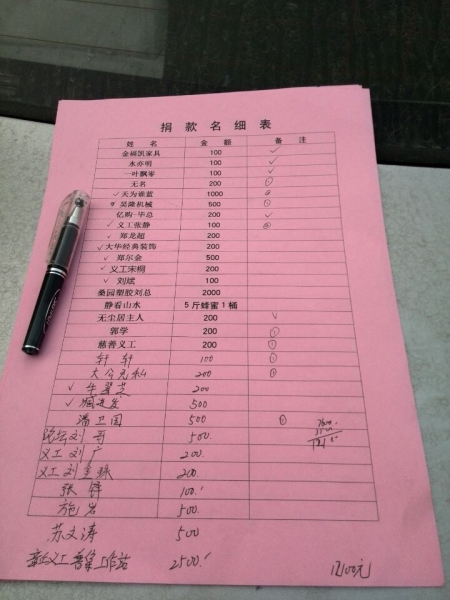 捐款名细表
姓名 金额 备注
金福凯家具 100
水亦明 100
一叶飘零 100
无名 200
天为谁蓝 1000
昊隆机械 500
亿购-毕总 200
义工张静 100
郑龙超 200
大华经典装饰 200
郑尔金 500
义工宋桐 200
刘斌 100
桑园塑胶刘总 2000
静看山水 5斤蜂蜜1桶
无尘居主人 200
郭学 200
慈善义工 200
轩轩 100
200
牛翠芝 200
500
潘卫国 500
论坛刘哥 500
义工刘广 200
义工刘金 200
张锋 100
施岩 500
苏文涛 500
义工 工作站 2500
12100元